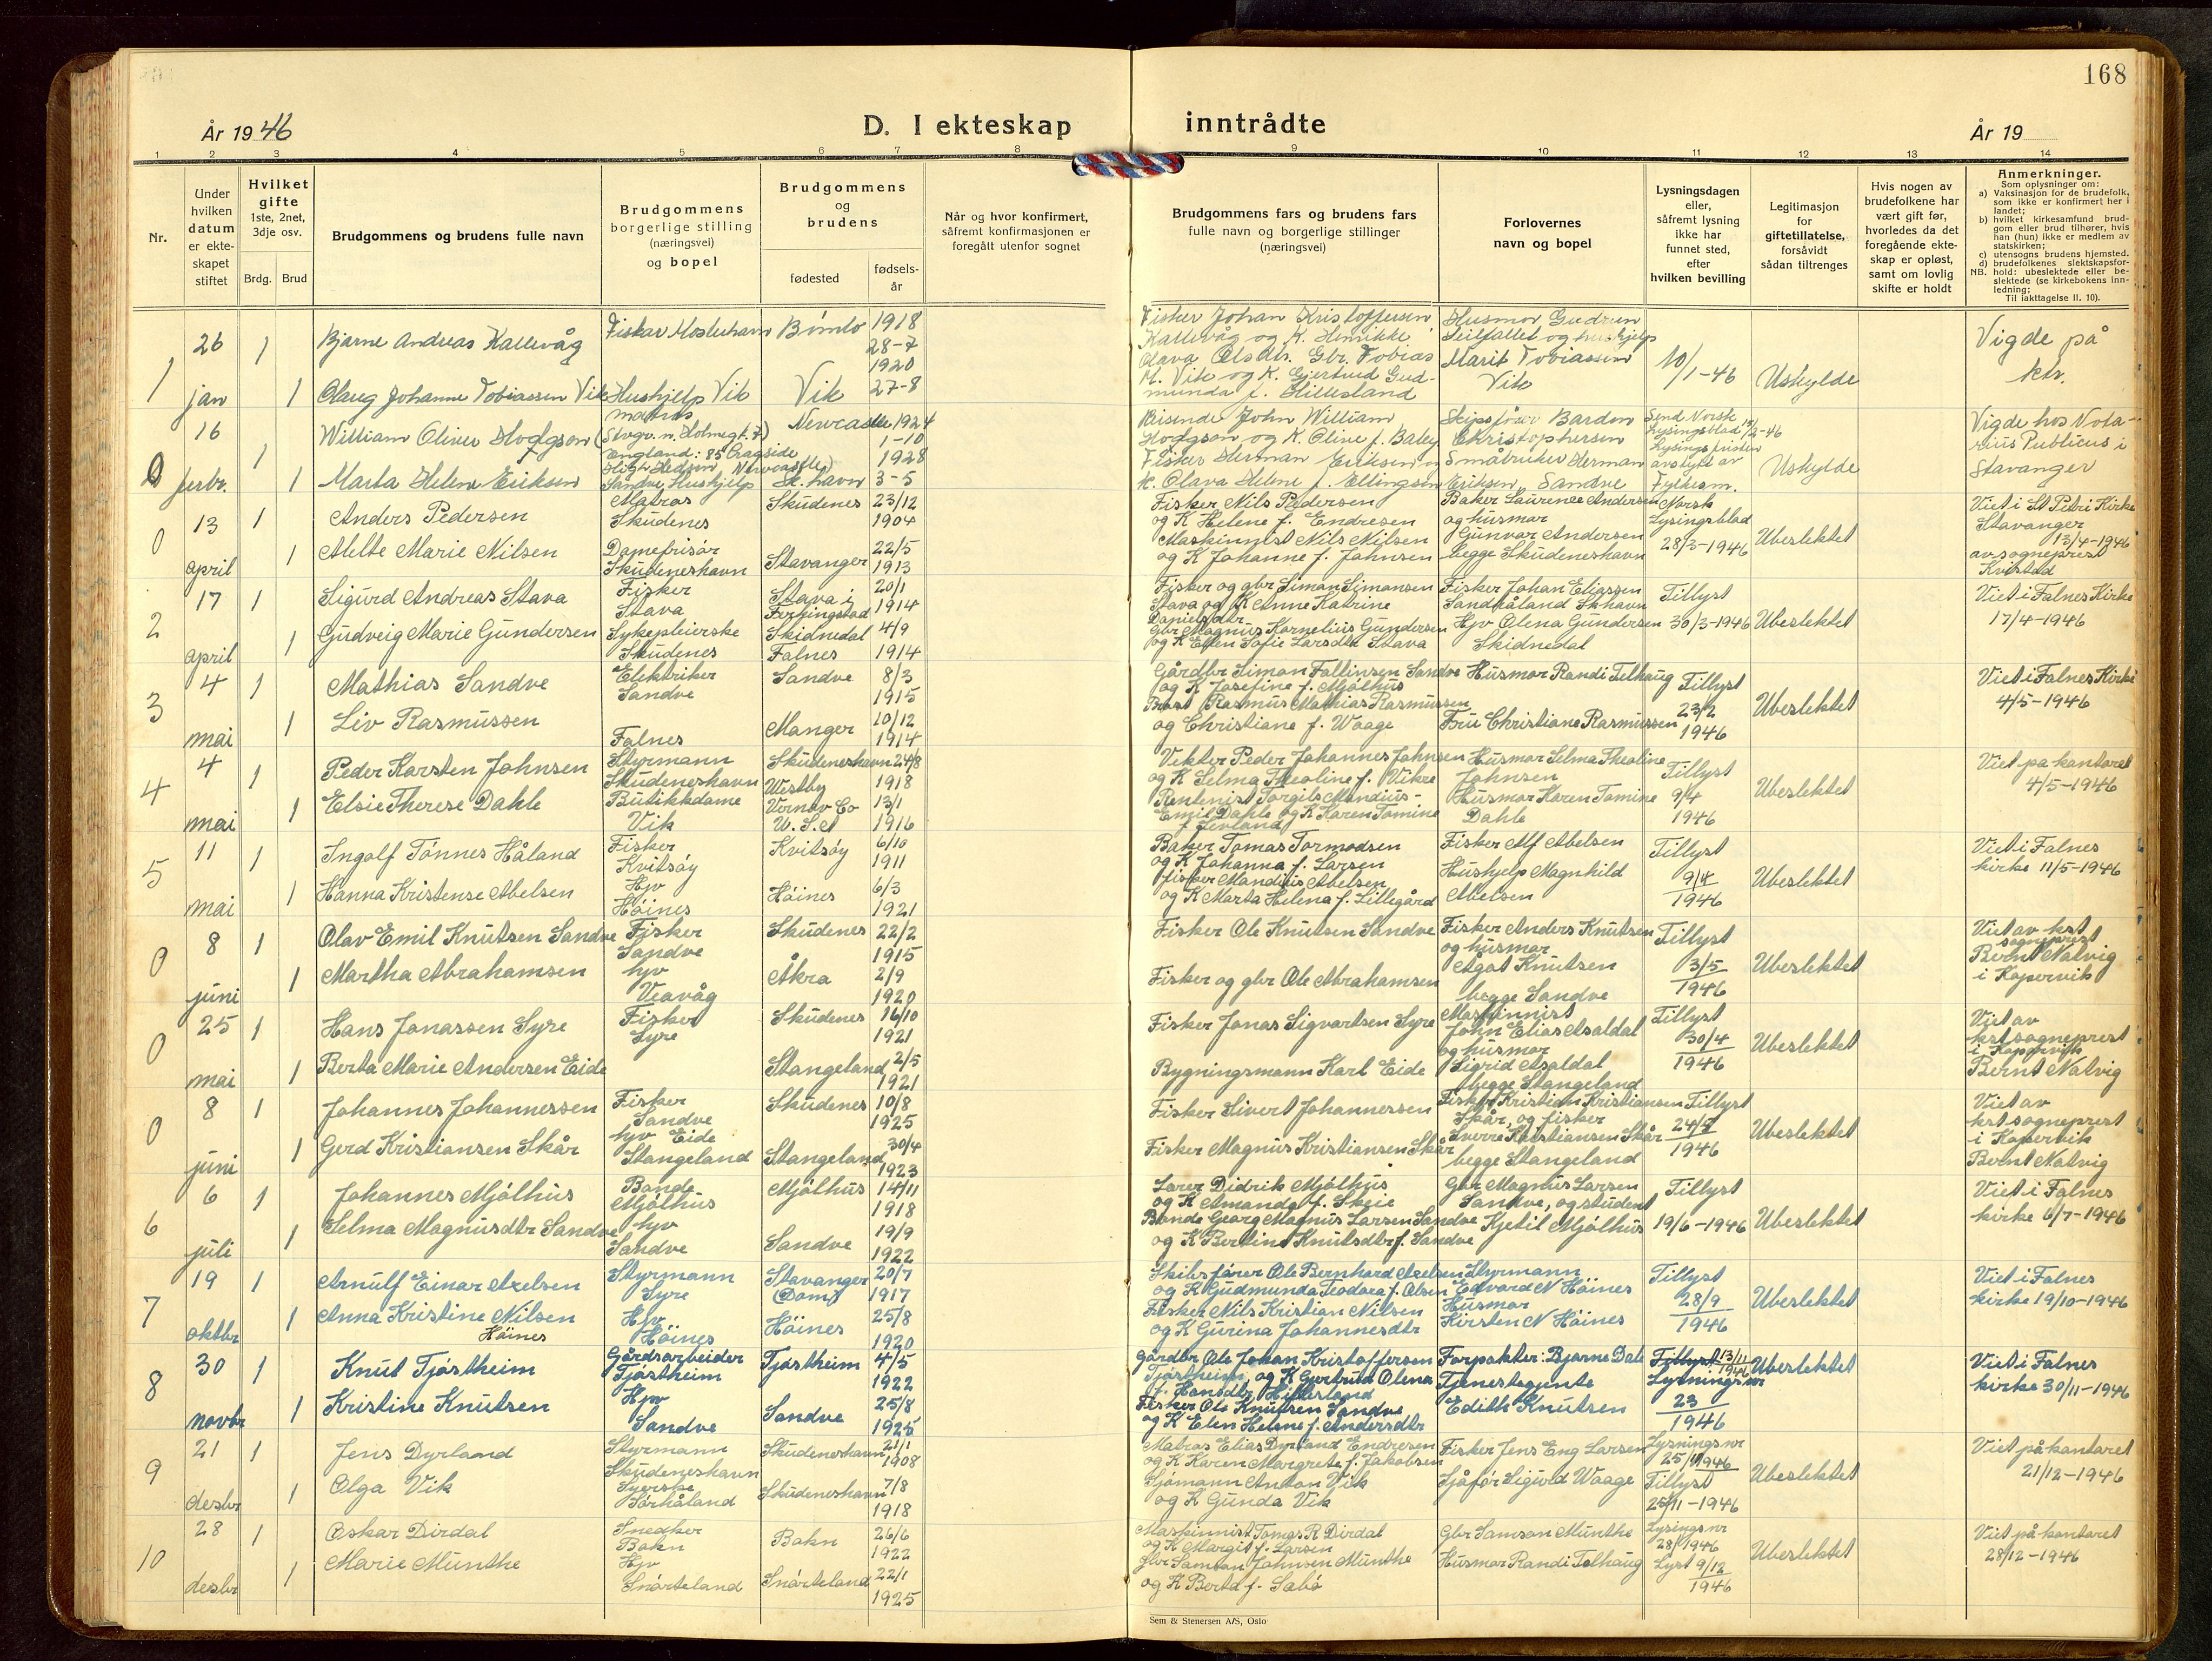 168
År 1946
D. I ekteskap
inntrådte
År 19
1 2 3 4 5 6 7 8 9 10 11 12 13 14
Nr.
Under hvilken datum er ekte-skapet stiftet
Hvilket gifte 1ste, 2net, 3dje osv.
Brdg. Brud
Brudgommens og brudens fulle navn
Brudgommens borgerlige stilling (næringsvei) og bopel
Brudgommens og brudens
fødested
fødsels-år
Når og hvor konfirmert, såfremt konfirmasjonen er foregått utenfor sognet
Brudgommens fars og brudens fars fulle navn og borgerlige stillinger (næringsvei)
Forlovernes navn og bopel
Lysningsdagen eller, såfremt lysning ikke har funnet sted, efter hvilken bevilling
Legitimasjon for giftetillatelse, forsåvidt sådan tiltrenges
Hvis nogen av brudefolkene har vært gift før, hvorledes da det foregående ekte-skap er opløst, samt om lovlig skifte er holdt
Anmerkninger.
Som oplysninger om:
a) Vaksinasjon for de brudefolk, som ikke er konfirmert her i landet;
b) hvilket kirkesamfund brud-gom eller brud tilhører, hvis han (hun) ikke er medlem av statskirken;
c) utensogns brudens hjemsted.
d) brudefolkenes slektskapsfor-
NB. hold: ubeslektede eller be-slektede (se kirkebokens inn-ledning;
Til iakttagelse II. 10).
1
26 jan
1 Bjarne Andreas Kallevåg
Fisker Mosterhavn
Bømlo
1918 28-7
1 Olaug Johanne Tobiassen Vik
Hushjelp Vik
Vik
1920 27-8
Fisker Johan Kristoffersen
Kallevåg og K. Henrikke
Olava Olsdtr. Gbr. Tobias
M. Vik og K. Gjertrud Gud-
munda f. Hillesland
Husmor Gudrun
Seilfallet og hushjelp
Marit Tobiassen
Vik
10/1-46
Uskylde
Vigde på
ktr.
0
16 febr.
1 William Oliver Hodgson
matros
(Stvgr. n. Holmegt. 7)
England: 85 Cragside
High Hedson Newcastle)
Newcastle
1924 1-10
1 Marta Helene Eriksen
Sandve, Hushjelp
Sk.havn
1928 3-5
Reisende John William
Hodgson og K. Olive f. Baley
Fisker Herman Eriksen og
K. Olava Helene f. Ellingsen
Skipsfører Bardon
Christophersen
Småbruker Herman
Eriksen, Sandve
Send Norsk
Lysingsblad 15/2-46
Lysingsfristen
avstytt av
Fylkesm.
Uskylde
Vigde hos Nota-
rius Publicus i
Stavanger
0
13 april
1 Anders Pedersen
Matros
Skudenes
Skudenes
23/12 1904
1 Mette Marie Nilsen
Damefrisør
Skudeneshavn
Stavanger
22/5 1913
Fisker Nils Pedersen
og K Helene f. Endresen
Maskinnist Nils Nilsen
og K Johanne f. Johnsen
Baker Laurence Andersen
og husmor
Gunvor Andersen
begge Skudeneshavn
Norsk
Lysingsblad
28/3-1946
Ubeslektet
Viet i St Petri Kirke
Stavanger
13/4-1946
av sogneprest
Kvistad
2
17 april
1 Sigurd Andreas Stava
Fisker
Stava
Stava i
Ferkingstad
20/1 1914
1 Gudveig Marie Gundersen
Sykepleierske
Skudenes
Skidnedal
Falnes
4/9 1914
Fisker og gbr Simon Simonsen
Stava og K Anne Katrine
Danielsdtr
Gbr Magnus Kornelius Gundersen
og K Ellen Sofie Larsdtr Stava
Fisker Johan Eliassen
Sandhåland Skhavn
Hjv Olena Gundersen
Skidnedal
Tillyst
30/3-1946
Ubeslektet
Viet i Falnes Kirke
17/4-1946
3
4 mai
1 Mathias Sandve
Elektriker
Sandve
Sandve
8/3 1915
1 Liv Rasmussen
Falnes
Manger
10/12 1914
Gårdbr Simon Fallinsen Sandve
og K Josefine f. Mjølhus
Prost Rasmus Mathias Rasmussen
og Christiane f. Waage
Husmor Randi Telhaug
Fru Christiane Rasmussen
Tillyst
23/2
1946
Ubeslektet
Viet i Falnes Kirke
4/5-1946
4
4 mai
1 Peder Karsten Johnsen
Styrmann
Skudeneshavn
Skudeneshavn
24/8 1918
1 Elsie Therese Dahle
Butikkdame
Vik
Westby
Vernov Co
U.S.A
13/1 1916
Vekter Peder Johannes Johnsen
og K Selma Theoline f. Vikre
Rentenist Torgils Mandius-
Emil Dahle og K Karen Tomine
f. Sevland
Husmor Selma Theoline
Johnsen
Husmor Karen Tomine
Dahle
Tillyst
9/4
1946
Ubeslektet
Viet på kontoret
4/5-1946
5
11 mai
1 Ingolf Tønnes Håland
Fisker
Kvitsøy
Kvitsøy
6/10 1911
1 Hanna Kristense Abelsen
Hjv
Høines
Høines
6/3 1921
Baker Tomas Tormodsen
og K Johanna f. Larsen
fisker Mandius Abelsen
og K Marta Helena f. Lillegård
Fisker Alf Abelsen
Hushjelp Magnhild
Abelsen
Tillyst
9/4
1946
Ubeslektet
Viet i Falnes
kirke 11/5-1946
0
8 juni
1 Olav Emil Knutsen Sandve
Fisker
Sandve
Skudenes
22/2 1915
1 Martha Abrahamsen
hjv
Veavåg
Åkra
2/9 1920
Fisker Ole Knutsen Sandve
Fisker og gbr Ole Abrahamsen
Fisker Anders Knutsen
og husmor
Ågot Knutsen
begge Sandve
Tillyst
3/5
1946
Ubeslektet
Viet av kst
sogneprest
Bernt Natvig
i Kopervik
0
25 mai
1 Hans Jonassen Syre
Fisker
Syre
Skudenes
16/10 1921
1 Berta Marie Andersen Eide
Stangeland
2/5 1921
Fisker Jonas Sigvartsen Syre
Bygningsmann Karl Eide
Maskinnist
John Elias Åsaldal
og husmor
Sigrid Åsaldal
begge Stangeland
Tillyst
30/4
1946
Ubeslektet
Viet av
kst sogneprest
i Kopervik
Bernt Natvig
0
8 juni
1 Johannes Johannessen
Fisker
Sandve
Skudenes
10/8 1925
1 Gerd Kristiansen Skår
hjv Eide
Stangeland
Stangeland
30/4 1923
Fisker Sivert Johannessen
Fisker Magnus Kristiansen Skår
Fisker Kristian Kristiansen
Skår, og fisker
Sverre Kristiansen Skår
begge Stangeland
Tillyst
1946
Ubeslektet
Viet av
kst sogneprest
i Kopervik
Bernt Natvig
6
6 juli
1 Johannes Mjølhus
Bonde
Mjølhus
Mjølhus
14/11 1918
1 Selma Magnusdtr Sandve
hjv
Sandve
Sandve
19/9 1922
Lærer Didrik Mjølhus
og K Amanda f. Skeie
Bonde Georg Magnus Larsen Sandve
og K Bertine Knutsdtr f. Sandve
Gbr Magnus Larsen
Sandve, og student
Kjetil Mjølhus
Tillyst
19/6-1946
Ubeslektet
Viet i Falnes
kirke 6/7-1946
7
19 oktbr
1 Arnulf Einar Axelsen
Styrmann
Syre
Stavanger
(Dom)
20/7 1917
1 Anna Kristine Nilsen
Høines
Hjv
Høines
Høines
25/8 1920
Skibsfører Ole Bernhard Axelsen
og K Gudmunda Teodora f. Olsen
Fisker Nils Kristian Nilsen
og K Gurina Johannesdtr
Styrmann
Edvard N Høines
Husmor
Kirsten N Høines
Tillyst
28/9
1946
Ubeslektet
Viet i Falnes
kirke 19/10-1946
8
30 novbr
1 Knut Tjøstheim
Gårdsarbeider
Tjøstheim
Tjøstheim
4/5 1922
1 Kristine Knutsen
Hjv
Sandve
Sandve
25/8 1925
Gårdbr Ole Johan Kristoffersen
Tjøstheim, og K Gertrud Olena
f. Hansdtr Hillesland
Fisker Ole Knutsen Sandve
og K Elen Helene f. Andersdtr
Forpakter: Bjarne Dale
Tjenestejente
Edith Knutsen
Tillyst 13/11 1946
Lysnings nr
23
1946
Ubeslektet
Viet i Falnes
kirke 30/11-1946
9
21 desbr
1 Jens Dyrland
Styrmann
Skudeneshavn
Skudeneshavn
21/1 1908
1 Olga Vik
Syerske
Sørhåland
Skudeneshavn
7/8 1918
Matros Elias Dyrland Endresen
og K Karen Margrete f. Jakobsen
Sjømann Anton Vik
og K Gunda Vik
Fisker Jens Eng Larsen
Sjåfør Sigurd Waage
Lysnings nr
25/1946
Tillyst
25/11-1946
Ubeslektet
Viet på kontoret
21/12-1946
10
28 desbr
1 Oskar Dirdal
Snedker
Bokn
Bokn
26/6 1922
1 Marie Munthe
Hjv
Snørteland
Snørteland
22/1 1925
Maskinnist Tomas R Dirdal
og K Margit f. Larsen
Gbr Samson Johnsen Munthe
og K Berta f. Sæbø
Gbr Samson Munthe
Husmor Randi Telhaug
Lysings nr
28/1946
Lyst 9/12
1946
Ubeslektet
Viet på kontoret
28/12-1946
Sem & Stenersen A/S, Oslo